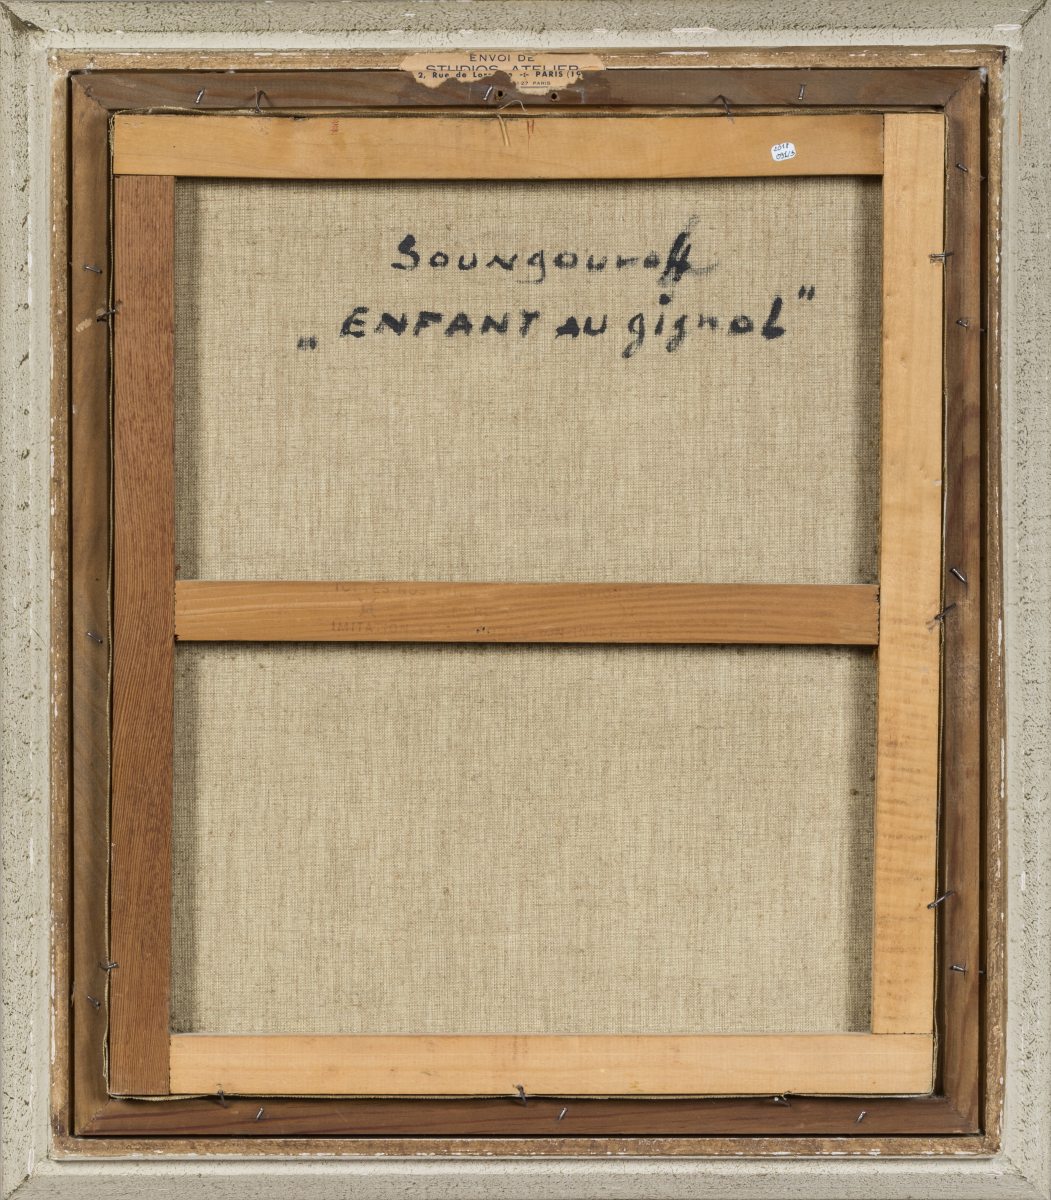 ENVOI DE
STUDIOS ATELIER
2, Rue de PARIS
27 PARIS
2018
Soungouroff
„ENFANT AU gignol"
IMITA